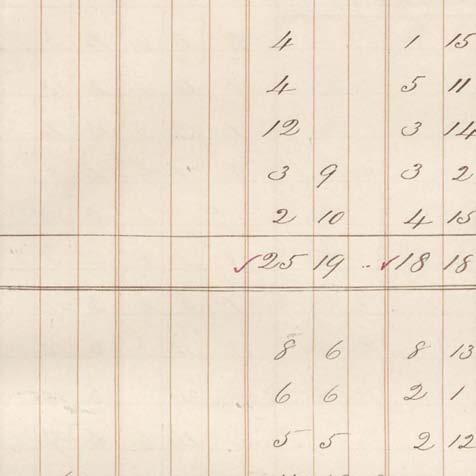 4 1 15
4 5 11
12 3 14
3 9 3 2
2 10 4 15
✓25 19 .. ✓18 18
8 6 8 13
6 6 2 1
5 5 2 12